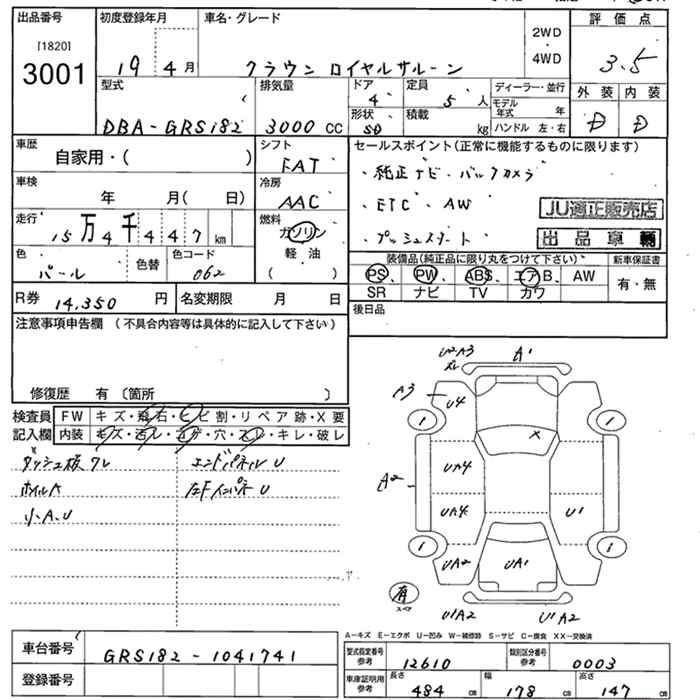 出品番号
[1820]
3001
初度登録年月
19 4月
車名・グレード
クラウン ロイヤルサルーン
2WD
・
4WD
評価点
3.5
外装 内装
D D
型式
DBA-GRS182
排気量
3000 CC
ドア
4
形状
SD
定員
5 人
積載
kg
ディーラー・並行
モデル年式 年
ハンドル 左・右
車歴
自家用・( )
シフト
FAT
車検
年 月( 日)
冷房
AAC
走行
15万4千447km
燃料
ガソリン
軽油
( )
色
パール
色替
色コード
062
R券 14,350 円
名変期限 月 日
セールスポイント(正常に機能するものに限ります)
・純正ナビ・バックカメラ
・ETC・AW
・プッシュスタート
JU適正販売店
出品車輌
装備品(純正品に限り丸をつけて下さい)
PS、PW、ABS、エアB、AW
SR ナビ TV カワ
新車保証書
有・無
後日品
注意事項申告欄(不具合内容等は具体的に記入して下さい)
修復歴 有〔箇所 〕
検査員記入欄
FW キズ・飛石・ヒビ割・リペア跡・X要
内装 キズ・汚レ・コゲ・穴・スレ・キレ・破レ
ダッシュ板クレ
エンドパネルU
ホイルA
左Fインパネ U
小A.U
U2A3
A1
A3
U4
1 1
X
A2
UA4
UA4
U1
1 1
UA2
UA1
有
スペア
U1A2 U1A2
A-キズ E-エクボ U-凹み W-補修跡 S-サビ C-腐食 XX-交換済
車台番号 GRS182-1041741
登録番号
型式指定番号 参考 12610
類別区分番号 参考 0003
車庫証明用 参考
長さ 484 cm
幅 178 cm
高さ 147 cm